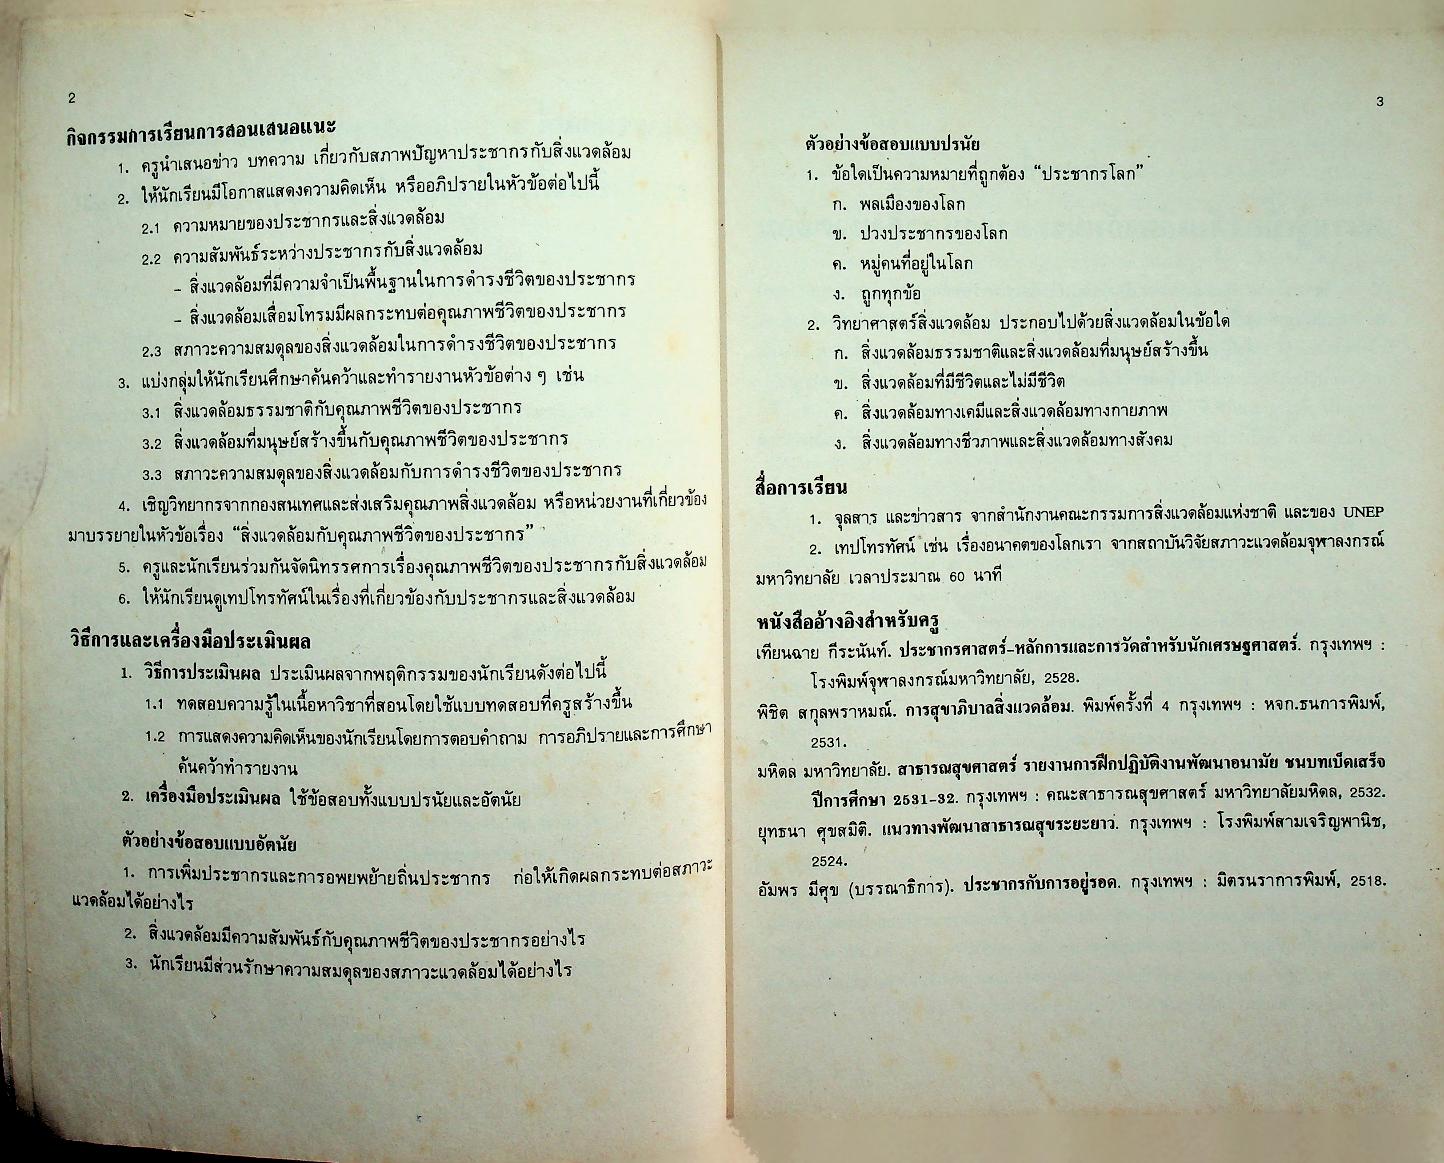 2
กิจกรรมการเรียนการสอนเสนอแนะ
1. ครูนำเสนอข่าว บทความ เกี่ยวกับสภาพปัญหาประชากรกับสิ่งแวดล้อม
2. ให้นักเรียนมีโอกาสแสดงความคิดเห็น หรืออภิปรายในหัวข้อต่อไปนี้
2.1 ความหมายของประชากรและสิ่งแวดล้อม
2.2 ความสัมพันธ์ระหว่างประชากรกับสิ่งแวดล้อม
– สิ่งแวดล้อมที่มีความจำเป็นพื้นฐานในการดำรงชีวิตของประชากร
– สิ่งแวดล้อมเสื่อมโทรมมีผลกระทบต่อคุณภาพชีวิตของประชากร
2.3 สภาวะความสมดุลของสิ่งแวดล้อมในการดำรงชีวิตของประชากร
3. แบ่งกลุ่มให้นักเรียนศึกษาค้นคว้าและทำรายงานหัวข้อต่าง ๆ เช่น
3.1 สิ่งแวดล้อมธรรมชาติกับคุณภาพชีวิตของประชากร
3.2 สิ่งแวดล้อมที่มนุษย์สร้างขึ้นกับคุณภาพชีวิตของประชากร
3.3 สภาวะความสมดุลของสิ่งแวดล้อมกับการดำรงชีวิตของประชากร
4. เชิญวิทยากรจากกองสนเทศและส่งเสริมคุณภาพสิ่งแวดล้อม หรือหน่วยงานที่เกี่ยวข้อง
มาบรรยายในหัวข้อเรื่อง “สิ่งแวดล้อมกับคุณภาพชีวิตของประชากร”
5. ครูและนักเรียนร่วมกันจัดนิทรรศการเรื่องคุณภาพชีวิตของประชากรกับสิ่งแวดล้อม
6. ให้นักเรียนดูเทปโทรทัศน์ในเรื่องที่เกี่ยวข้องกับประชากรและสิ่งแวดล้อม
วิธีการและเครื่องมือประเมินผล
1. วิธีการประเมินผล ประเมินผลจากพฤติกรรมของนักเรียนดังต่อไปนี้
1.1 ทดสอบความรู้ในเนื้อหาวิชาที่สอนโดยใช้แบบทดสอบที่ครูสร้างขึ้น
1.2 การแสดงความคิดเห็นของนักเรียนโดยการตอบคำถาม การอภิปรายและการศึกษา
ค้นคว้าทำรายงาน
2. เครื่องมือประเมินผล ใช้ข้อสอบทั้งแบบปรนัยและอัตนัย
ตัวอย่างข้อสอบแบบอัตนัย
1. การเพิ่มประชากรและการอพยพย้ายถิ่นประชากร ก่อให้เกิดผลกระทบต่อสภาวะ
แวดล้อมได้อย่างไร
2. สิ่งแวดล้อมมีความสัมพันธ์กับคุณภาพชีวิตของประชากรอย่างไร
3. นักเรียนมีส่วนรักษาความสมดุลของสภาวะแวดล้อมได้อย่างไร
3
ตัวอย่างข้อสอบแบบปรนัย
1. ข้อใดเป็นความหมายที่ถูกต้อง “ประชากรโลก”
ก. พลเมืองของโลก
ข. ปวงประชากรของโลก
ค. หมู่คนที่อยู่ในโลก
ง. ถูกทุกข้อ
2. วิทยาศาสตร์สิ่งแวดล้อม ประกอบไปด้วยสิ่งแวดล้อมในข้อใด
ก. สิ่งแวดล้อมธรรมชาติและสิ่งแวดล้อมที่มนุษย์สร้างขึ้น
ข. สิ่งแวดล้อมที่มีชีวิตและไม่มีชีวิต
ค. สิ่งแวดล้อมทางเคมีและสิ่งแวดล้อมทางกายภาพ
ง. สิ่งแวดล้อมทางชีวภาพและสิ่งแวดล้อมทางสังคม
สื่อการเรียน
1. จุลสาร และข่าวสาร จากสำนักงานคณะกรรมการสิ่งแวดล้อมแห่งชาติ และของ UNEP
2. เทปโทรทัศน์ เช่น เรื่องอนาคตของโลกเรา จากสถาบันวิจัยสภาวะแวดล้อมจุฬาลงกรณ์
มหาวิทยาลัย เวลาประมาณ 60 นาที
หนังสืออ้างอิงสำหรับครู
เทียนฉาย กีระนันท์. ประชากรศาสตร์–หลักการและการวัดสำหรับนักเศรษฐศาสตร์. กรุงเทพฯ :
โรงพิมพ์จุฬาลงกรณ์มหาวิทยาลัย, 2528.
พิชิต สกุลพราหมณ์. การสุขาภิบาลสิ่งแวดล้อม. พิมพ์ครั้งที่ 4 กรุงเทพฯ : หจก.ธนการพิมพ์,
2531.
มหิดล มหาวิทยาลัย. สาธารณสุขศาสตร์ รายงานการฝึกปฏิบัติงานพัฒนาอนามัย ชนบทเบ็ดเสร็จ
ปีการศึกษา 2531-32. กรุงเทพฯ : คณะสาธารณสุขศาสตร์ มหาวิทยาลัยมหิดล, 2532.
ยุทธนา ศุขสมิติ. แนวทางพัฒนาสาธารณสุขระยะยาว. กรุงเทพฯ : โรงพิมพ์สามเจริญพานิช,
2524.
อัมพร มีศุข (บรรณาธิการ). ประชากรกับการอยู่รอด. กรุงเทพฯ : มิตรนราการพิมพ์, 2518.